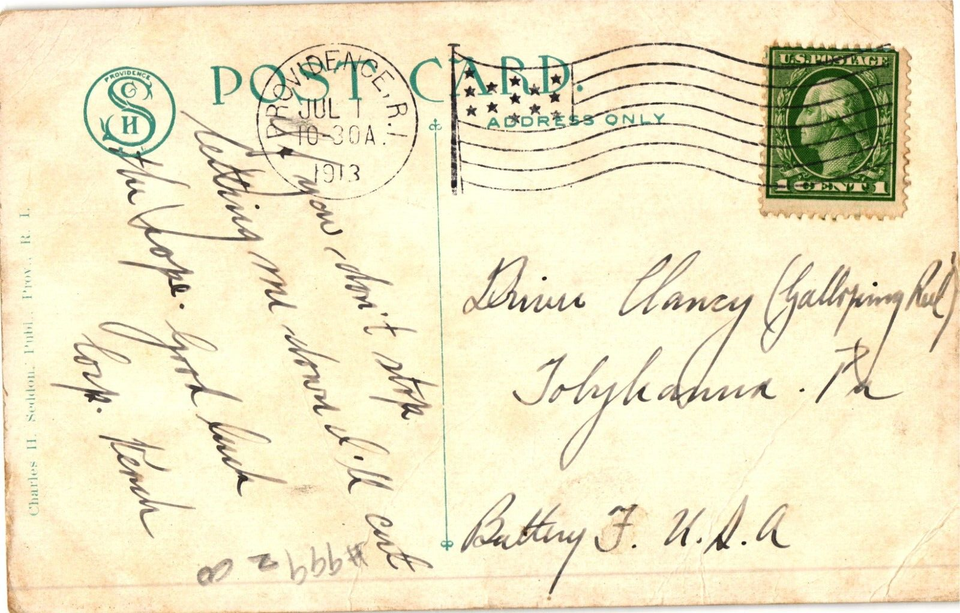 POST CARD.
ADDRESS ONLY
PROVIDENCE
SH
PROVIDENCE, R.I.
JUL 1
10-30A.
1913
U.S. POSTAGE
1 CENT 1
If you don't stop
letting me down I'll cut
the rope. Good luck
Corp. Kench
Driver Clancy (Galloping Reel)
Tobyhanna. Pa
Battery F. U.S.A
#999 2
8
Charles H. Seddon, Publ., Prov., R. I.